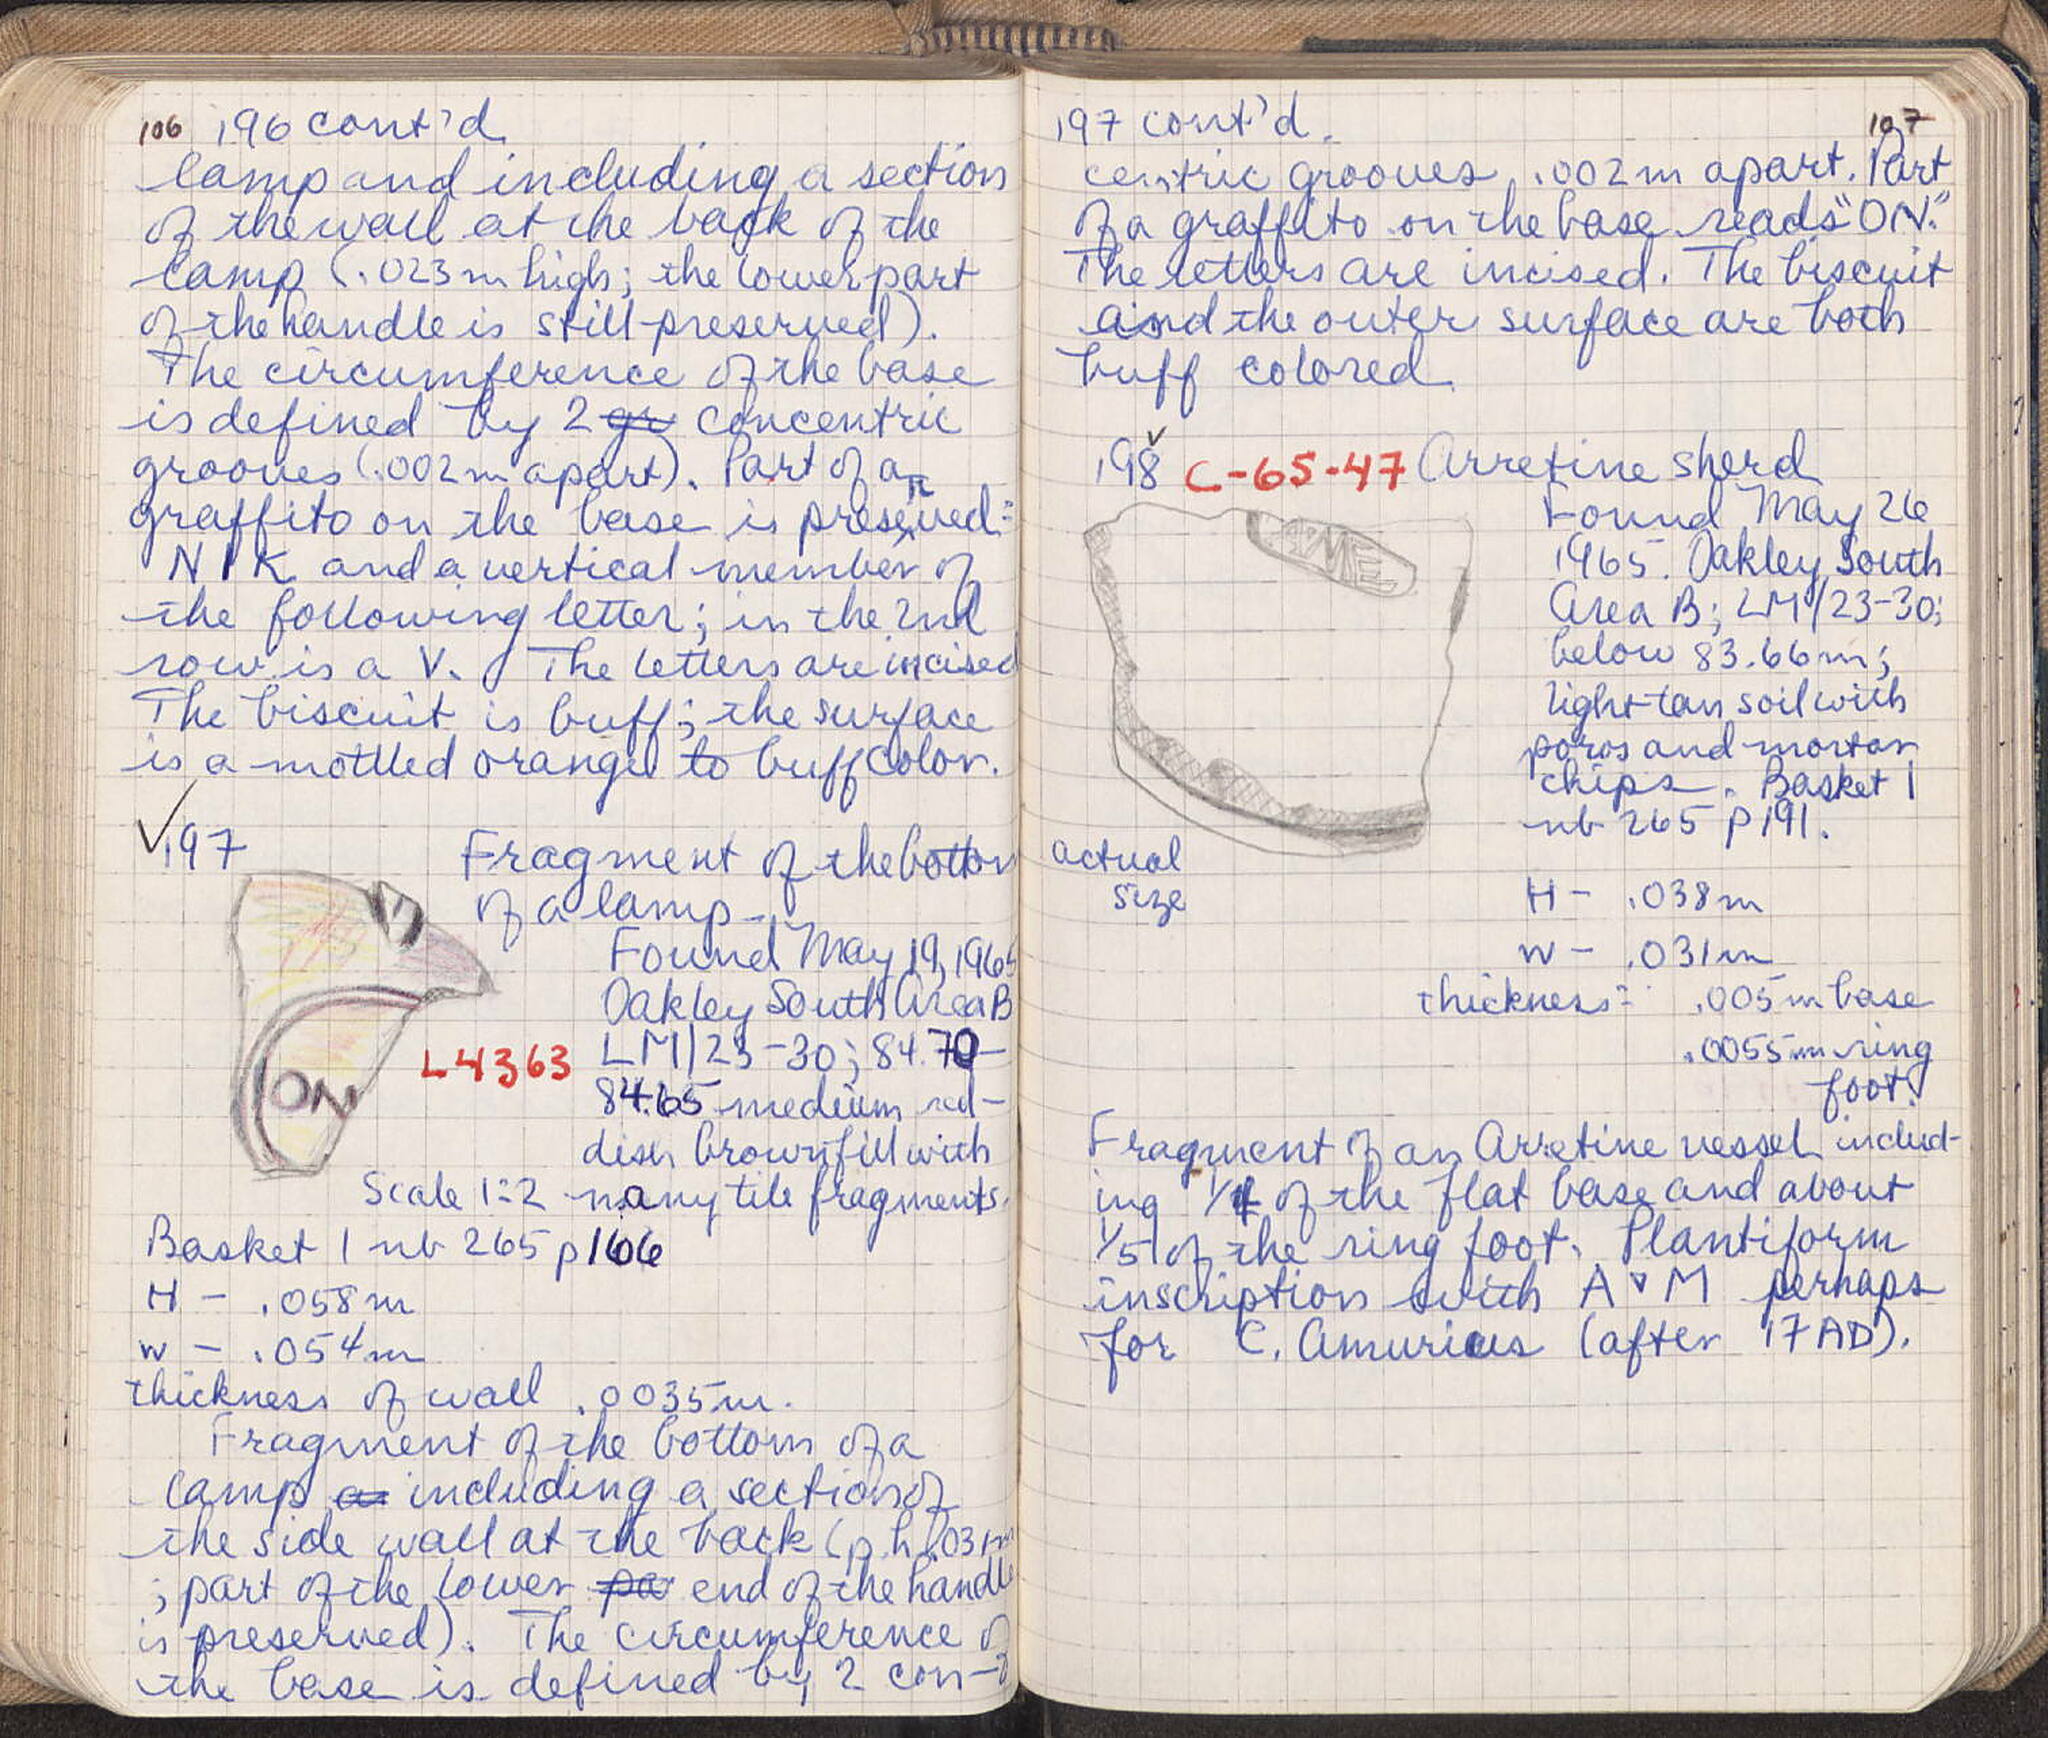 106 196 cont'd
lamp and including a section
of the wall at the back of the
lamp (.023m high; the lower part
of the handle is still preserved).
The circumference of the base
is defined by 2 gr concentric
grooves (.002m apart). Part of a
graffito on the base is preserved:
NIK and a vertical member of
the following letter; in the 2nd
row is a V. The letters are incised
The biscuit is buff; the surface
is a mottled oranged to buff color.
✓197 Fragment of the bottom
of a lamp -
Found May 19, 1965
Oakley South Area B
L4363 LM/23-30; 84.70-
84.65 medium red-
dish brown fill with
Scale 1:2 many tile fragments.
ON
Basket 1 nb 265 p166
H - .058m
W - .054m
thickness of wall .0035m.
Fragment of the bottom of a
lamp a including a section of
the side wall at the back (p.h. .031m
; part of the lower pa end of the handle
is preserved). The circumference of
the base is defined by 2 con-
197 cont'd. 107
centric grooves .002m apart. Part
of a graffito on the base reads "ON."
The letters are incised. The biscuit
and the outer surface are both
buff colored.
198 ✓ C-65-47 Arretine sherd
Found May 26
1965. Oakley South
Area B; LM/23-30;
below 83.66m;
light tan soil with
poros and mortar
chips. Basket 1
nb 265 p191.
actual
size
H - .038m
W - .031m
thickness: .005m base
.0055m ring
foot.
Fragment of an Arretine vessel includ-
ing 1/4 of the flat base and about
1/5 of the ring foot. Plantiform
inscription with A▾M perhaps
for C. Amurius (after 17 AD).